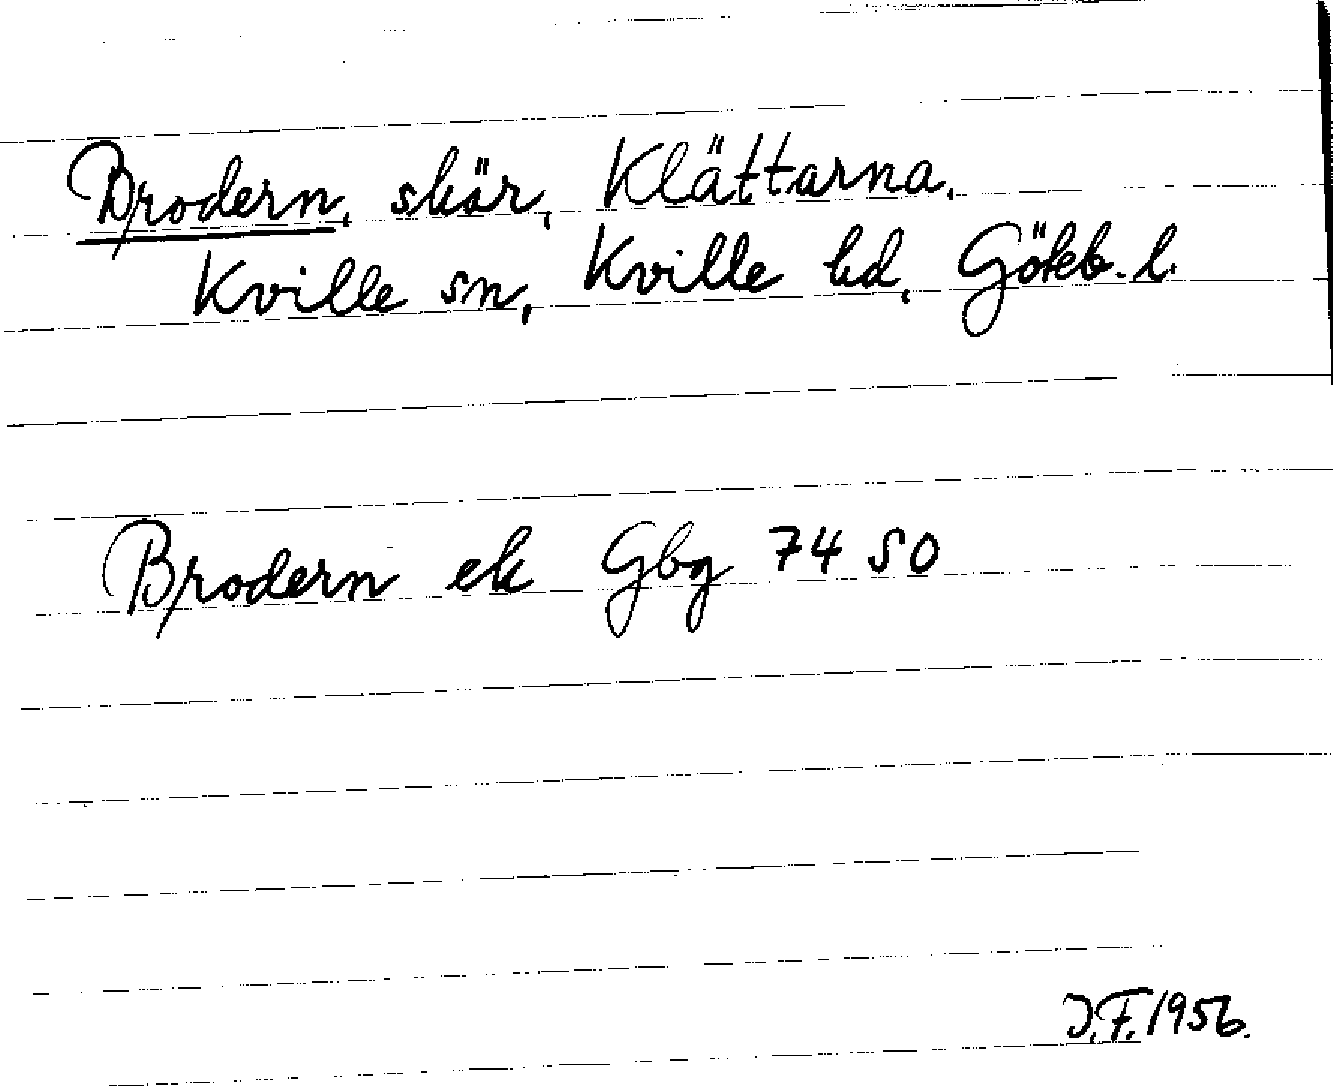 Brodern, skär, Klättarna,
Kville sn, Kville hd, Göteb. l.
Brodern ek Gbg 74 SO
J.F. 1956.